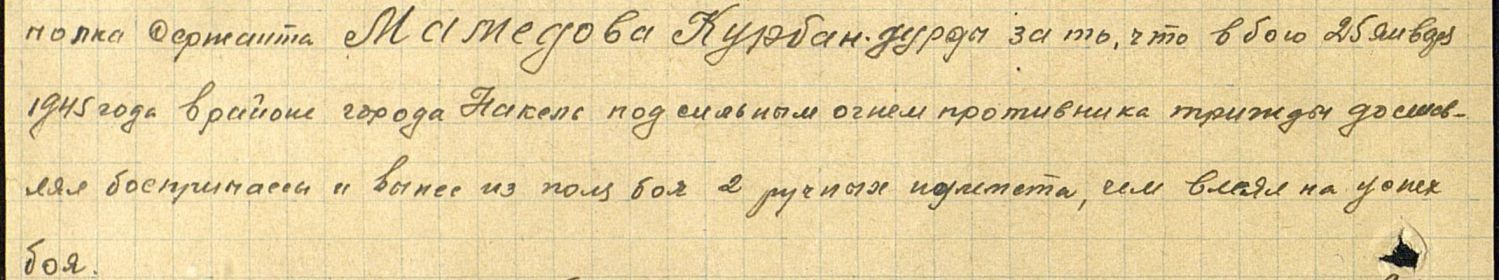 полка Сержанта Мамедова Курбан-дурды за то, что в бою 25 января
1945 года в районе города Накель под сильным огнем противника трижды достав-
лял боеприпасы и вынес из поля боя 2 ручных пулемета, чем влиял на успех
боя.